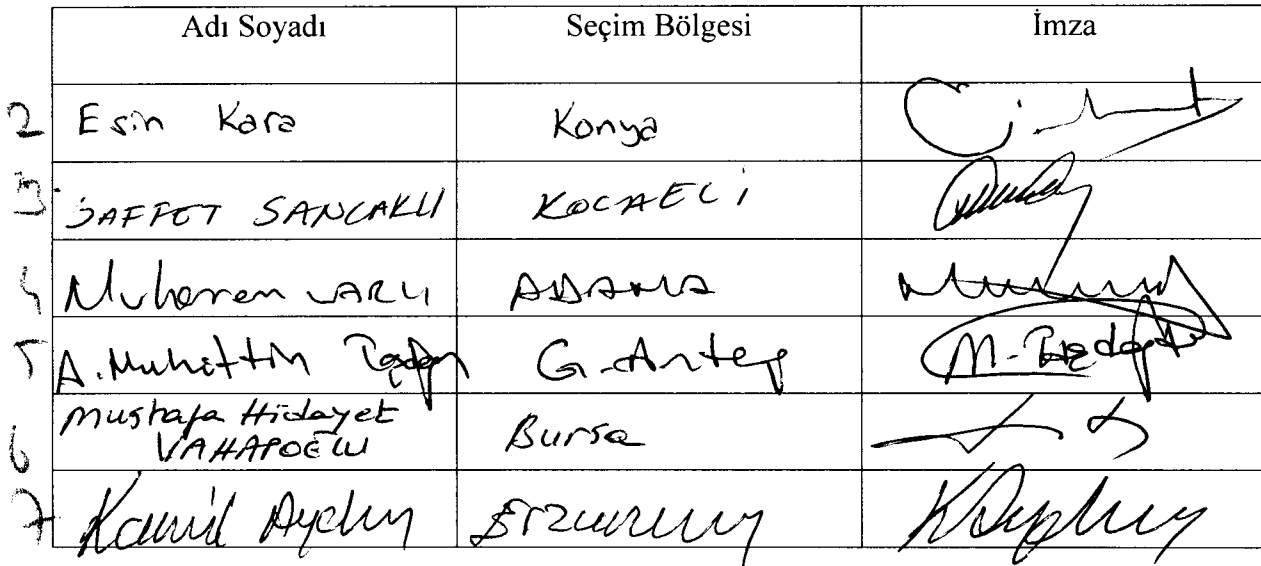 Adı Soyadı Seçim Bölgesi İmza
2 Esin Kara Konya
3 SAFFET SANCAKLI KOCAELİ
4 Muharrem VARLI ADANA
5 A. Muhittin Taşdoğan G.Antep
6 Mustafa Hidayet Bursa
VAHAPOĞLU
7 Kamil Aydın Erzurum